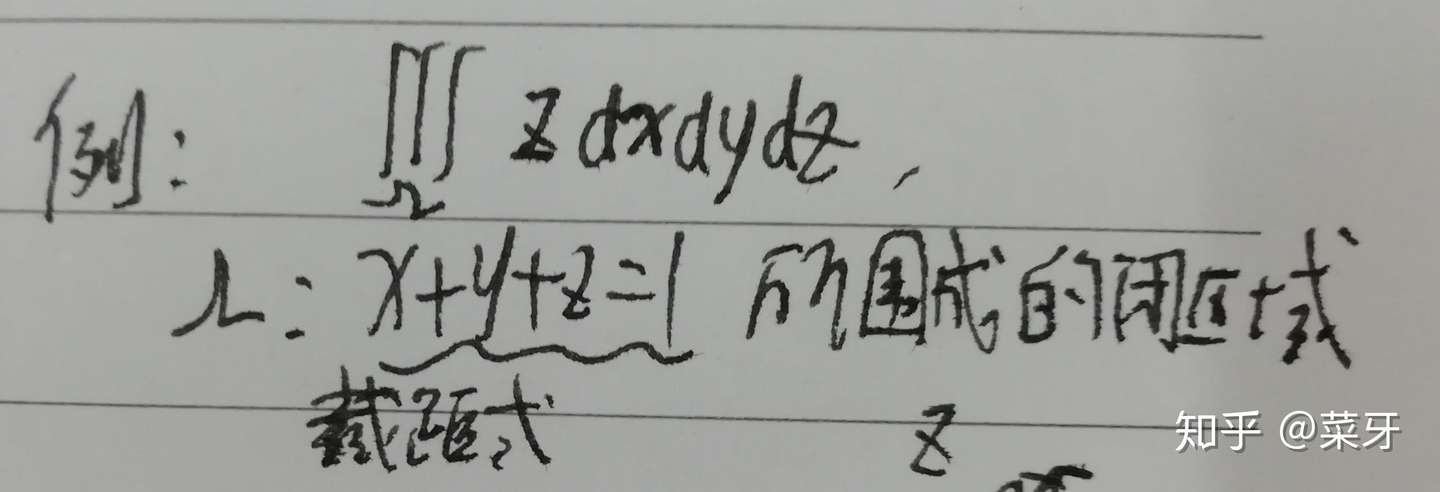 例: ∭Ω z dxdydz,
Ω: x+y+z=1 所围成的闭区域
截距式
z
知乎 @菜牙